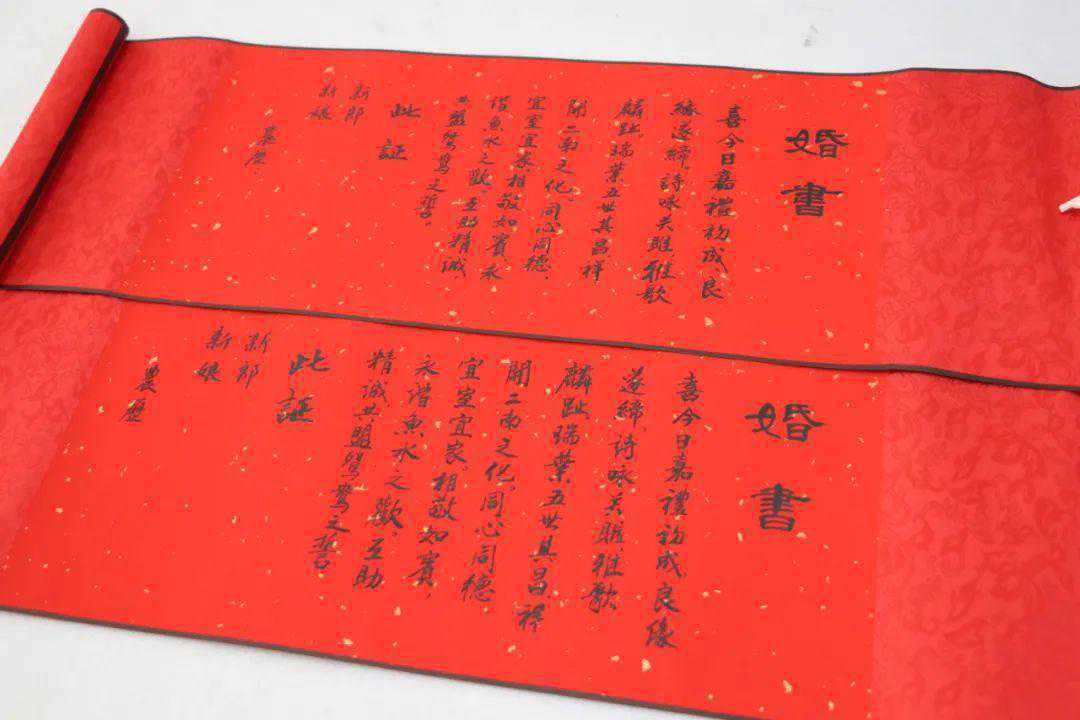 婚書
喜今日嘉禮初成良
緣遂締詩咏关雎雅歌
麟趾瑞葉五世其昌祥
開二南之化同心同德
宜室宜家相敬如賓永
谐魚水之歡互助精诚
共盟鸳鸯之誓。
此証
新郎
新娘
農歷
婚書
喜今日嘉禮初成良緣
遂締詩咏关雎雅歌
麟趾瑞葉五世其昌祥
開二南之化同心同德
宜室宜家相敬如賓
永谐魚水之歡互助
精诚共盟鸳鸯之誓
此証
新郎
新娘
農歷